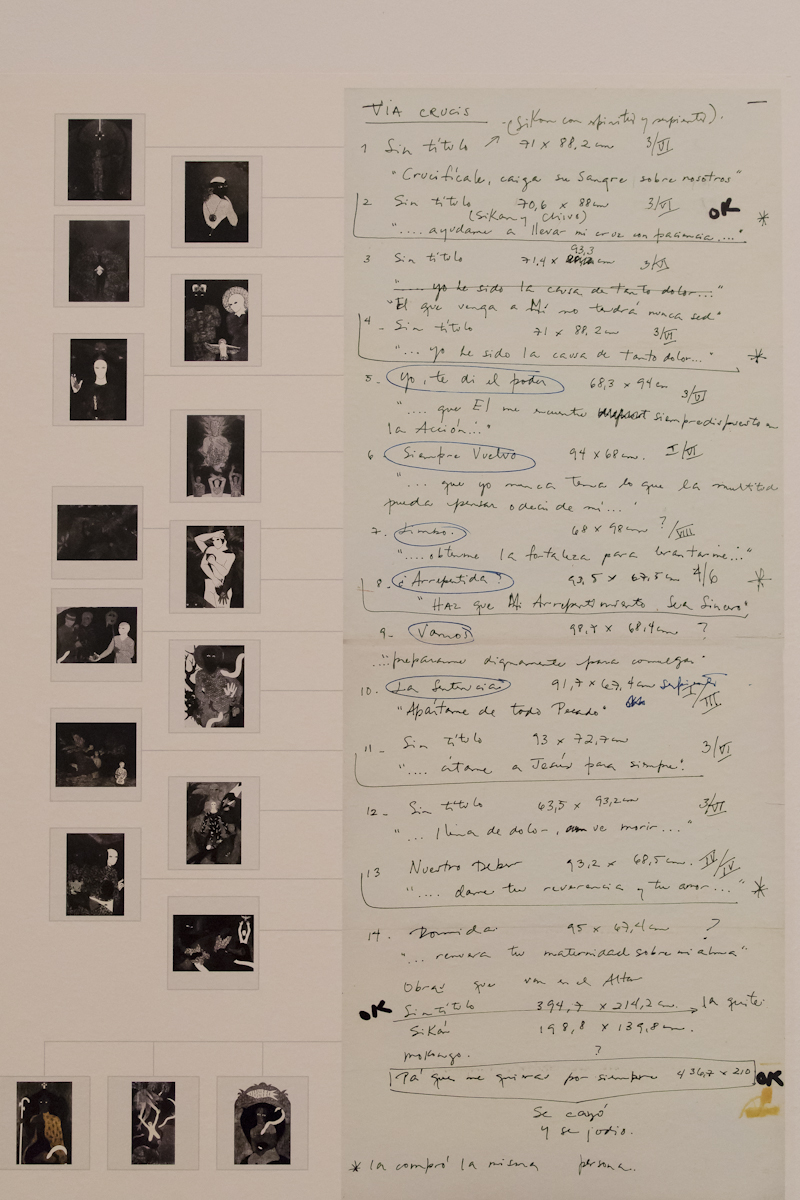 VÍA CRUCIS - (Sikan con espíritu y serpiente).
1 Sin título 71 x 88,2 cm 3/VI
"Crucifícale, caiga su Sangre sobre nosotros"
2 Sin título 70,6 x 88 cm 3/VI OK *
(Sikan y Chivo)
".... ayudame a llevar mi cruz con paciencia...."
3 Sin título 71,4 x 93,3 cm 3/VI
".... yo he sido la causa de tanto dolor..."
"El que venga a Mí no tendrá nunca sed"
4 - Sin título 71 x 88,2 cm 3/VI
"... yo he sido la causa de tanto dolor..." *
5. Yo, te di el poder 68,3 x 94 cm 3/VI
".... que El me encuentre siempre dispuesto en
la Acción..."
6 Siempre Vuelvo 94 x 68 cm. I/VI
"... que yo nunca tema lo que la multitud
pueda pensar o decir de mi..."
7. Limbo. 68 x 98 cm ?/VIII
".... obtenme la fortaleza para levantarme..."
8. ¿Arrepentida? 93,5 x 67,5 cm 4/6 *
"HAZ que Mi Arrepentimiento Sea Sincero"
9- Vamos 98,7 x 68,4 cm ?
"...prepárame dignamente para comulgar"
10. La Sentencia 91,7 x 67,4 cm I/III
"Apártame de todo Pecado"
11 - Sin título 93 x 72,7 cm 3/VI
".... átame a Jesús para siempre".
12 - Sin título 63,5 x 93,2 cm 3/VI
"... llena de dolor, morir..."
13 Nuestro Deber 93,2 x 68,5 cm. IV/IV
".... dame tu reverencia y tu amor..." *
14. Dormida 95 x 67,4 cm ?
"... renueva tu maternidad sobre mi alma"
Obras que van en el Altar
OK Sin título 394,7 x 214,2 cm. la quité.
Sikán 198,8 x 139,8 cm.
mokongo. ?
Pá que me quieras por siempre 436,7 x 210 OK
Se cayó
y se jodio.
* la compró la misma persona..